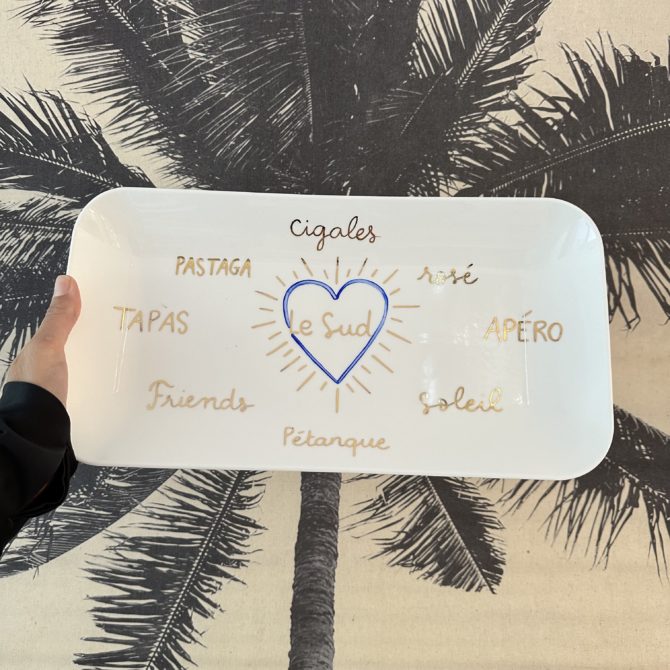 Cigales
PASTAGA
rosé
TAPAS
Le Sud
APÉRO
Friends
Soleil
Pétanque